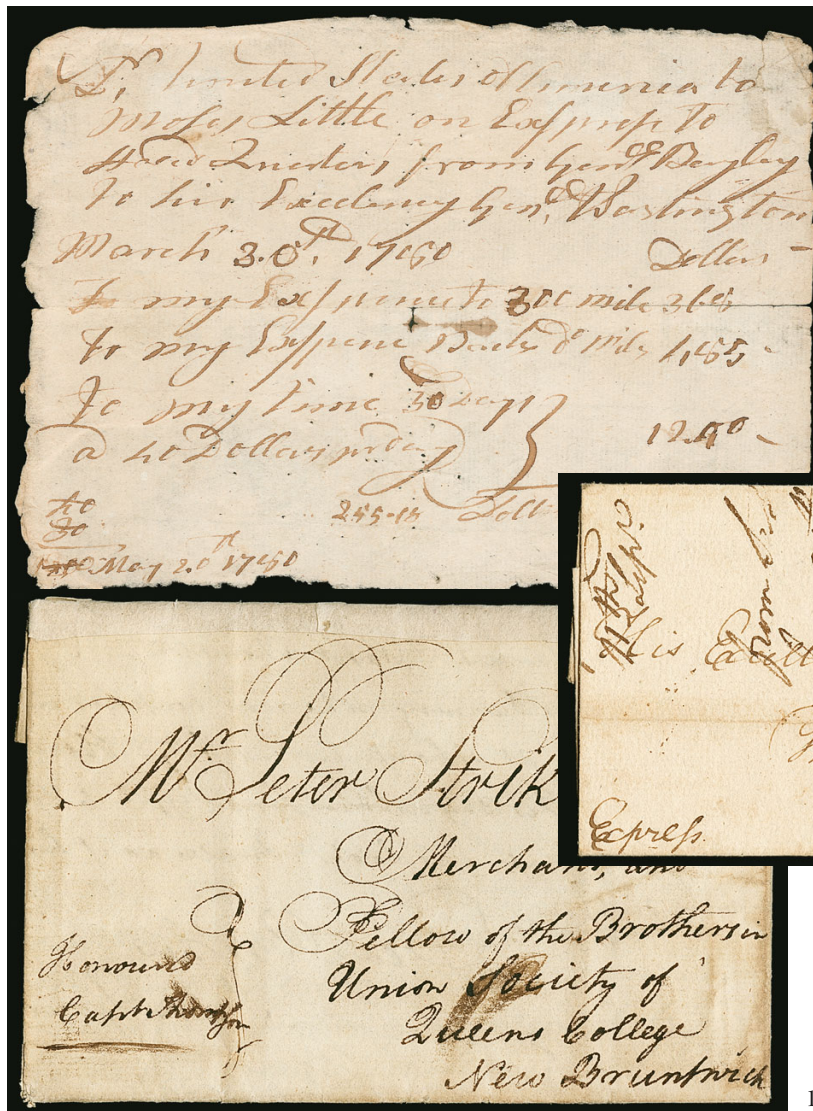 Dr United States of America to
Moses Little on Express to
Head Quarters from Genl Bayley
to his Excelency Genl Washington
March 30th 1780 Dollars
To my Expence to 300 mile 368
to my Expene Back do mile
To my time 30 Days
a 40 Dollars pr Day 1200
40
30
May 20th 1780
from
His
Express
Mr Peter Strik
Merchant, and
Fellow of the Brothers in
Honoured
Union Society of
Capt Thompson
Queens College
New Brunswick
1